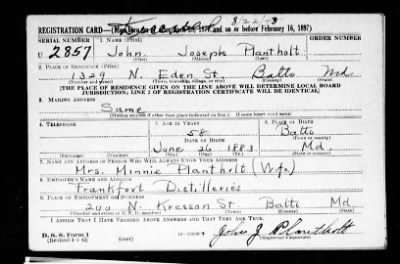 REGISTRATION CARD—(Men born on or after April 28, 1877 and on or before February 16, 1897)
SERIAL NUMBER 1. NAME (Print) ORDER NUMBER
U 2857 John Joseph Plantholt
(First) (Middle) (Last)
2. PLACE OF RESIDENCE (Print)
1329 N. Eden St. Balto Md
(Number and street) (Town, township, village, or city) (County) (State)
[THE PLACE OF RESIDENCE GIVEN ON THE LINE ABOVE WILL DETERMINE LOCAL BOARD
JURISDICTION; LINE 2 OF REGISTRATION CERTIFICATE WILL BE IDENTICAL]
3. MAILING ADDRESS
Same
[Mailing address if other than place indicated on line 2. If same insert word same]
4. TELEPHONE 5. AGE IN YEARS 6. PLACE OF BIRTH
58 Balto
DATE OF BIRTH (Town or county)
June 26 1883 Md.
(Exchange) (Number) (Mo.) (Day) (Yr.) (State or country)
7. NAME AND ADDRESS OF PERSON WHO WILL ALWAYS KNOW YOUR ADDRESS
Mrs. Minnie Plantholt (Wife)
8. EMPLOYER'S NAME AND ADDRESS
Frankfort Distilleries
9. PLACE OF EMPLOYMENT OR BUSINESS
200 N. Kresson St. Balto Md
(Number and street or R. F. D. number) (Town) (County) (State)
I AFFIRM THAT I HAVE VERIFIED ABOVE ANSWERS AND THAT THEY ARE TRUE.
D. S. S. Form 1 John J Plantholt
(Registrant's signature)